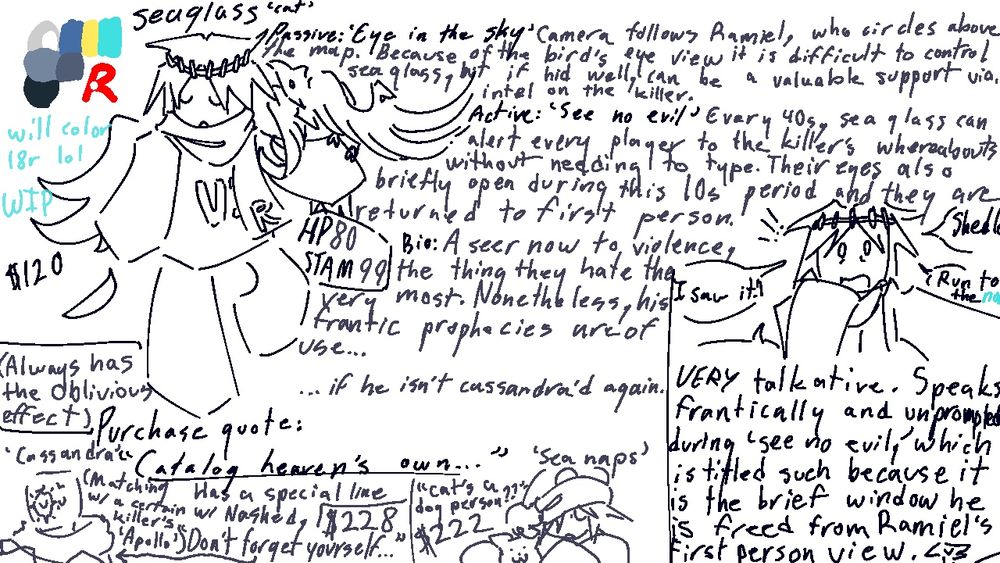 seaglass 'cat'
Passive: 'Eye in the sky' Camera follows Ramiel, who circles above
the map. Because of the bird's eye view it is difficult to control
seaglass, but if hid well, can be a valuable support via.
intel on the killer.
Active: 'See no evil' Every 40s, seaglass can
alert every player to the killer's whereabouts
without needing to type. Their eyes also
briefly open during this 10s period and they are
returned to first person.
R
will color
18r lol
WIP
$120
HP80
STAM99
Bio: A seer now to violence,
the thing they hate the
very most. Nonetheless, his
frantic prophecies are of
use...
...if he isn't cassandra'd again.
(Always has
the Oblivious
effect)
Purchase quote:
Catalog heaven's own..."
I saw it!
(Run to
the
VERY talkative. Speaks
frantically and unprompted
during 'see no evil,' which
is titled such because it
is the brief window he
is freed from Ramiel's
first person view. <\3
'Cassandra'
(Matching
w/ a certain
killer's
'Apollo')
Has a special line
w/ Nashed,
$228
"Don't forget yourself..."
'Sea naps'
"cat's a
dog person??"
$222